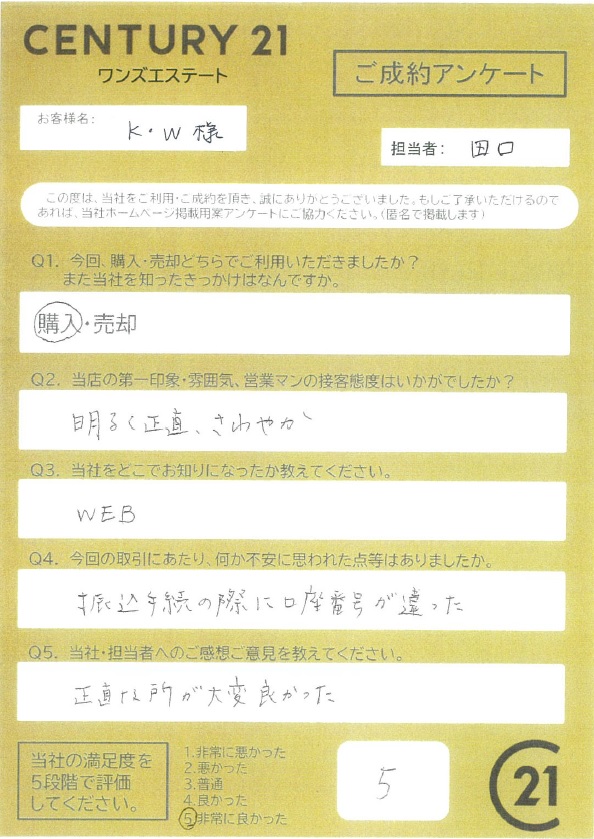 CENTURY 21
ワンズエステート
ご成約アンケート
お客様名:
K・W様
担当者: 田口
この度は、当社をご利用・ご成約を頂き、誠にありがとうございました。もしご了承いただけるので
あれば、当社ホームページ掲載用案アンケートにご協力ください。(匿名で掲載します)
Q1. 今回、購入・売却どちらでご利用いただきましたか?
また当社を知ったきっかけはなんですか。
購入・売却
Q2. 当店の第一印象・雰囲気、営業マンの接客態度はいかがでしたか?
明るく正直、さわやか
Q3. 当社をどこでお知りになったか教えてください。
WEB
Q4. 今回の取引にあたり、何か不安に思われた点等はありましたか。
振込手続の際に口座番号が違った
Q5. 当社・担当者へのご感想ご意見を教えてください。
正直な所が大変良かった
当社の満足度を
5段階で評価
してください。
1.非常に悪かった
2.悪かった
3.普通
4.良かった
5.非常に良かった
5
C21